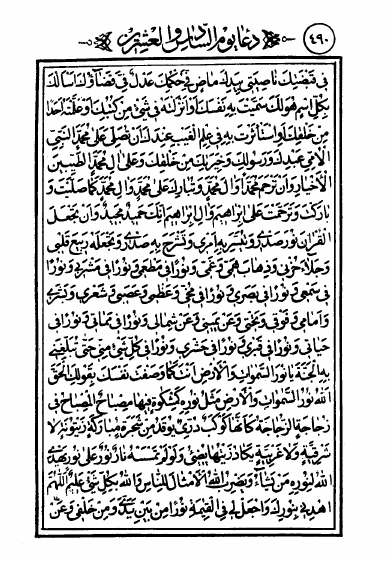 دعاء يوم السادس والعشرين
٤٩٠
في قبضتك ناصيتي بيدك ماض في حكمك عدل في قضاؤك اسالك
بكل اسم هو لك سميت به نفسك او انزلته في شيء من كتبك او علمته احدا
من خلقك او استاثرت به في علم الغيب عندك ان تصلي على محمد النبي
الامي عبدك ورسولك وخيرتك من خلقك وعلى ال محمد الطيبين
الاخيار وان ترحم محمدا وال محمد وتبارك على محمد وال محمد كما صليت و
باركت وترحمت على ابراهيم وال ابراهيم انك حميد مجيد وان تجعل
القران نور صدري وتيسر به امري وتشرح به صدري وتجعله ربيع قلبي
وجلاء حزني وذهاب همي وغمي ونورا في مطعمي ونورا في مشربي ونورا
في سمعي ونورا في بصري ونورا في مخي وعظمي وعصبي وشعري وبشري
وامامي وفوقي وتحتي وعن يميني وعن شمالي ونورا في مماتي ونورا في
حياتي ونورا في قبري ونورا في حشري ونورا في كل شيء مني حتى تبلغني
به الجنة يا نور السموات والارض انت كما وصفت نفسك بقولك الحق
الله نور السموات والارض مثل نوره كمشكوة فيها مصباح المصباح في
زجاجة الزجاجة كانها كوكب دري يوقد من شجرة مباركة زيتونة لا
شرقية ولا غربية يكاد زيتها يضيء ولو لم تمسسه نار نور على نور يهدي
الله لنوره من يشاء ويضرب الله الامثال للناس والله بكل شيء عليم اللهم
اهدني بنورك واجعل لي في القيمة نورا من بين يدي ومن خلفي وعن